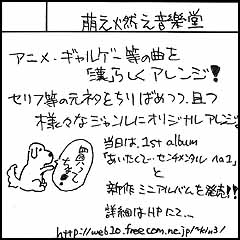 萌え燃え音楽堂
アニメ・ギャルゲー等の曲を
漢らしくアレンジ!
セリフ等の元ネタをちりばめつつ、且つ
様々なジャンルにオリジナルアレンジ
買ってなー!
当日は、1st album
「あいたくて…センチメンタル no.1」
と
新作ミニアルバムを発売!!
詳細はHPにて…
http://web10.freecom.ne.jp/